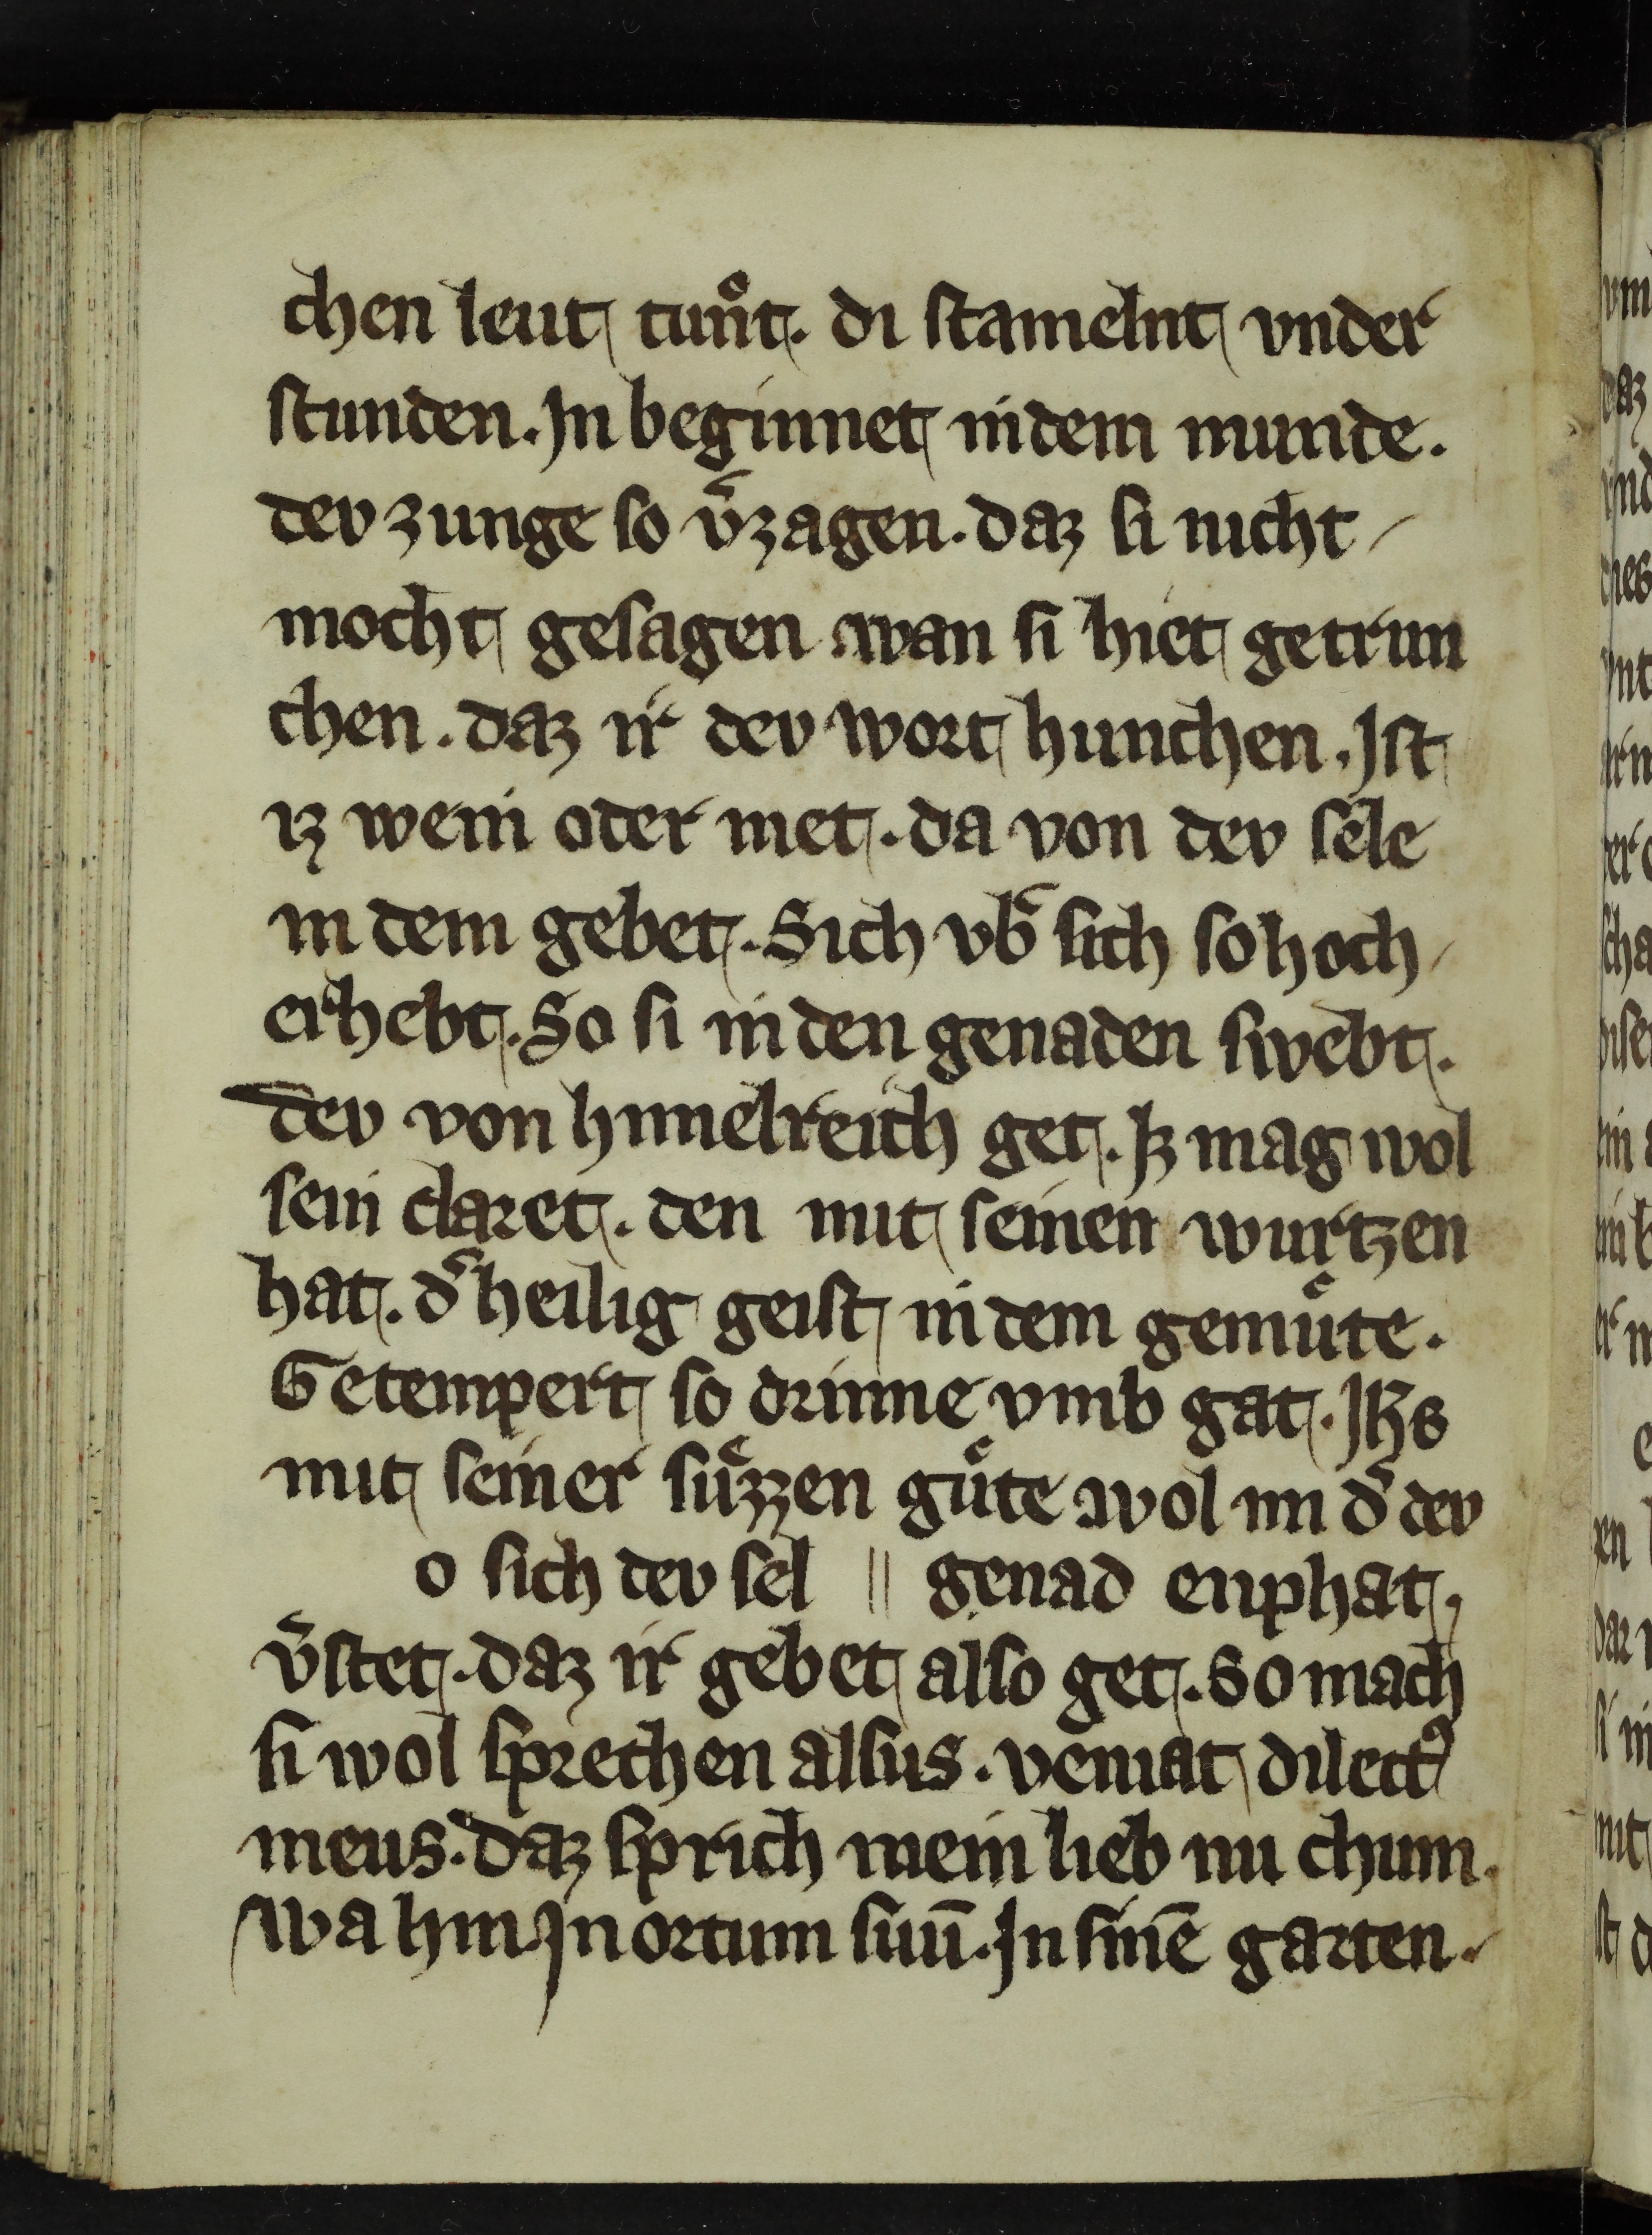 chen leut tuͦnt. di stamelnt vnder
stunden. Jn beginnet in dem munde.
dev zunge so v͛zagen. daz si nicht
mocht gesagen. wan si hiet getrun
chen. daz ir dev wort hunchen. Jst
iz wein oder met. da von dev sele
in dem gebet. Sich vb͛ sich so hoch
erhebt. So si in den genaden swebt.
dev von himelreich get. Jz mag wol
sein claret. den mit seinen wurtzen
hat. d͛ heilig geist in dem gemuͤte.
Getempert so drinne vmb gat. Jhs
mit seiner suͤzzen guͤte wol im d͛ dev
o sich dev sel || genad enphat,
v͛stet. daz ir gebet also get. So mach
si wol sprechen alsus. veniat dilectꝰ
meus. daz sprich mein lieb nu chum.
Wa hin. Jn ortum suū. Jn sinē garten.